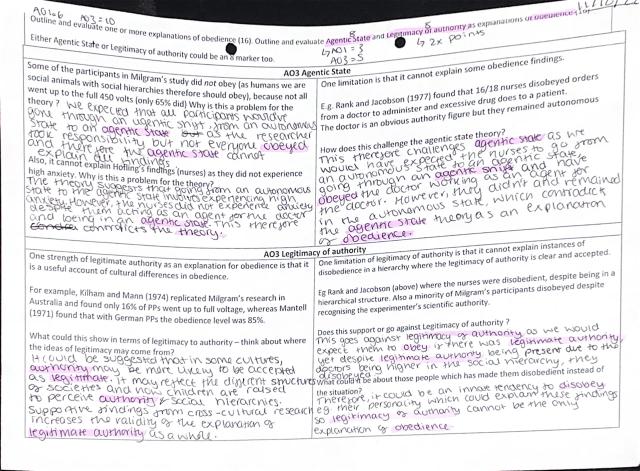 AO1:6 AO3=10
Outline and evaluate one or more explanations of obedience (16). Outline and evaluate Agentic State and Legitimacy of authority as explanations of obedience (16)
8 8
↳AO1 = 3
AO3 = 5
↳ 2x points
Either Agentic State or Legitimacy of authority could be an 8 marker too.
AO3 Agentic State
Some of the participants in Milgram's study did not obey (as humans we are
social animals with social hierarchies therefore should obey), because not all
went up to the full 450 volts (only 65% did) Why is this a problem for the
theory? We expected that all participants would've
gone through an agentic shift from an autonomous
state to an agentic state as the researcher
took responsibility but not everyone obeyed
and therefore the agentic state cannot
explain all findings
Also, it cannot explain Hofling's findings (nurses) as they did not experience
high anxiety. Why is this a problem for the theory?
The theory suggests that going from an autonomous
state to the agentic state involves experiencing high
anxiety. However the nurses did not experience anxiety
despite them acting as an agent for the doctor
and being in an agentic state. This therefore
contradicts the theory.
One limitation is that it cannot explain some obedience findings.
E.g. Rank and Jacobson (1977) found that 16/18 nurses disobeyed orders
from a doctor to administer and excessive drug does to a patient.
The doctor is an obvious authority figure but they remained autonomous
How does this challenge the agentic state theory?
This therefore challenges agentic state as we
would have expected the nurses to go from
an autonomous state to an agentic state,
going through an agentic shift and have
obeyed the doctor working as an agent for
the doctor. However, they didn't and remained
in the autonomous state, which contradicts
the agentic state theory as an explanation
of obedience.
AO3 Legitimacy of authority
One strength of legitimate authority as an explanation for obedience is that it
is a useful account of cultural differences in obedience.
For example, Kilham and Mann (1974) replicated Milgram's research in
Australia and found only 16% of PPs went up to full voltage, whereas Mantell
(1971) found that with German PPs the obedience level was 85%.
What could this show in terms of legitimacy to authority – think about where
the ideas of legitimacy may come from?
It could be suggested that in some cultures,
authority may be more likely to be accepted
as legitimate. It may reflect the different structures
of societies and how children are raised
to perceive authority & social hierarchies.
Supportive findings from cross-cultural research
increases the validity of the explanation of
legitimate authority as a whole.
One limitation of legitimacy of authority is that it cannot explain instances of
disobedience in a hierarchy where the legitimacy of authority is clear and accepted.
Eg Rank and Jacobson (above) where the nurses were disobedient, despite being in a
hierarchical structure. Also a minority of Milgram's participants disobeyed despite
recognising the experimenter's scientific authority.
Does this support or go against Legitimacy of authority?
This goes against legitimacy of authority as we would
expect them to obey if there was legitimate authority,
yet despite legitimate authority being present due to the
doctors being higher in the social hierarchy, they
disobeyed.
What could it be about those people which has made them disobedient instead of
the situation?
Therefore, it could be an innate tendency to disobey
eg. their personality which could explain these findings
so legitimacy of authority cannot be the only
explanation of obedience.